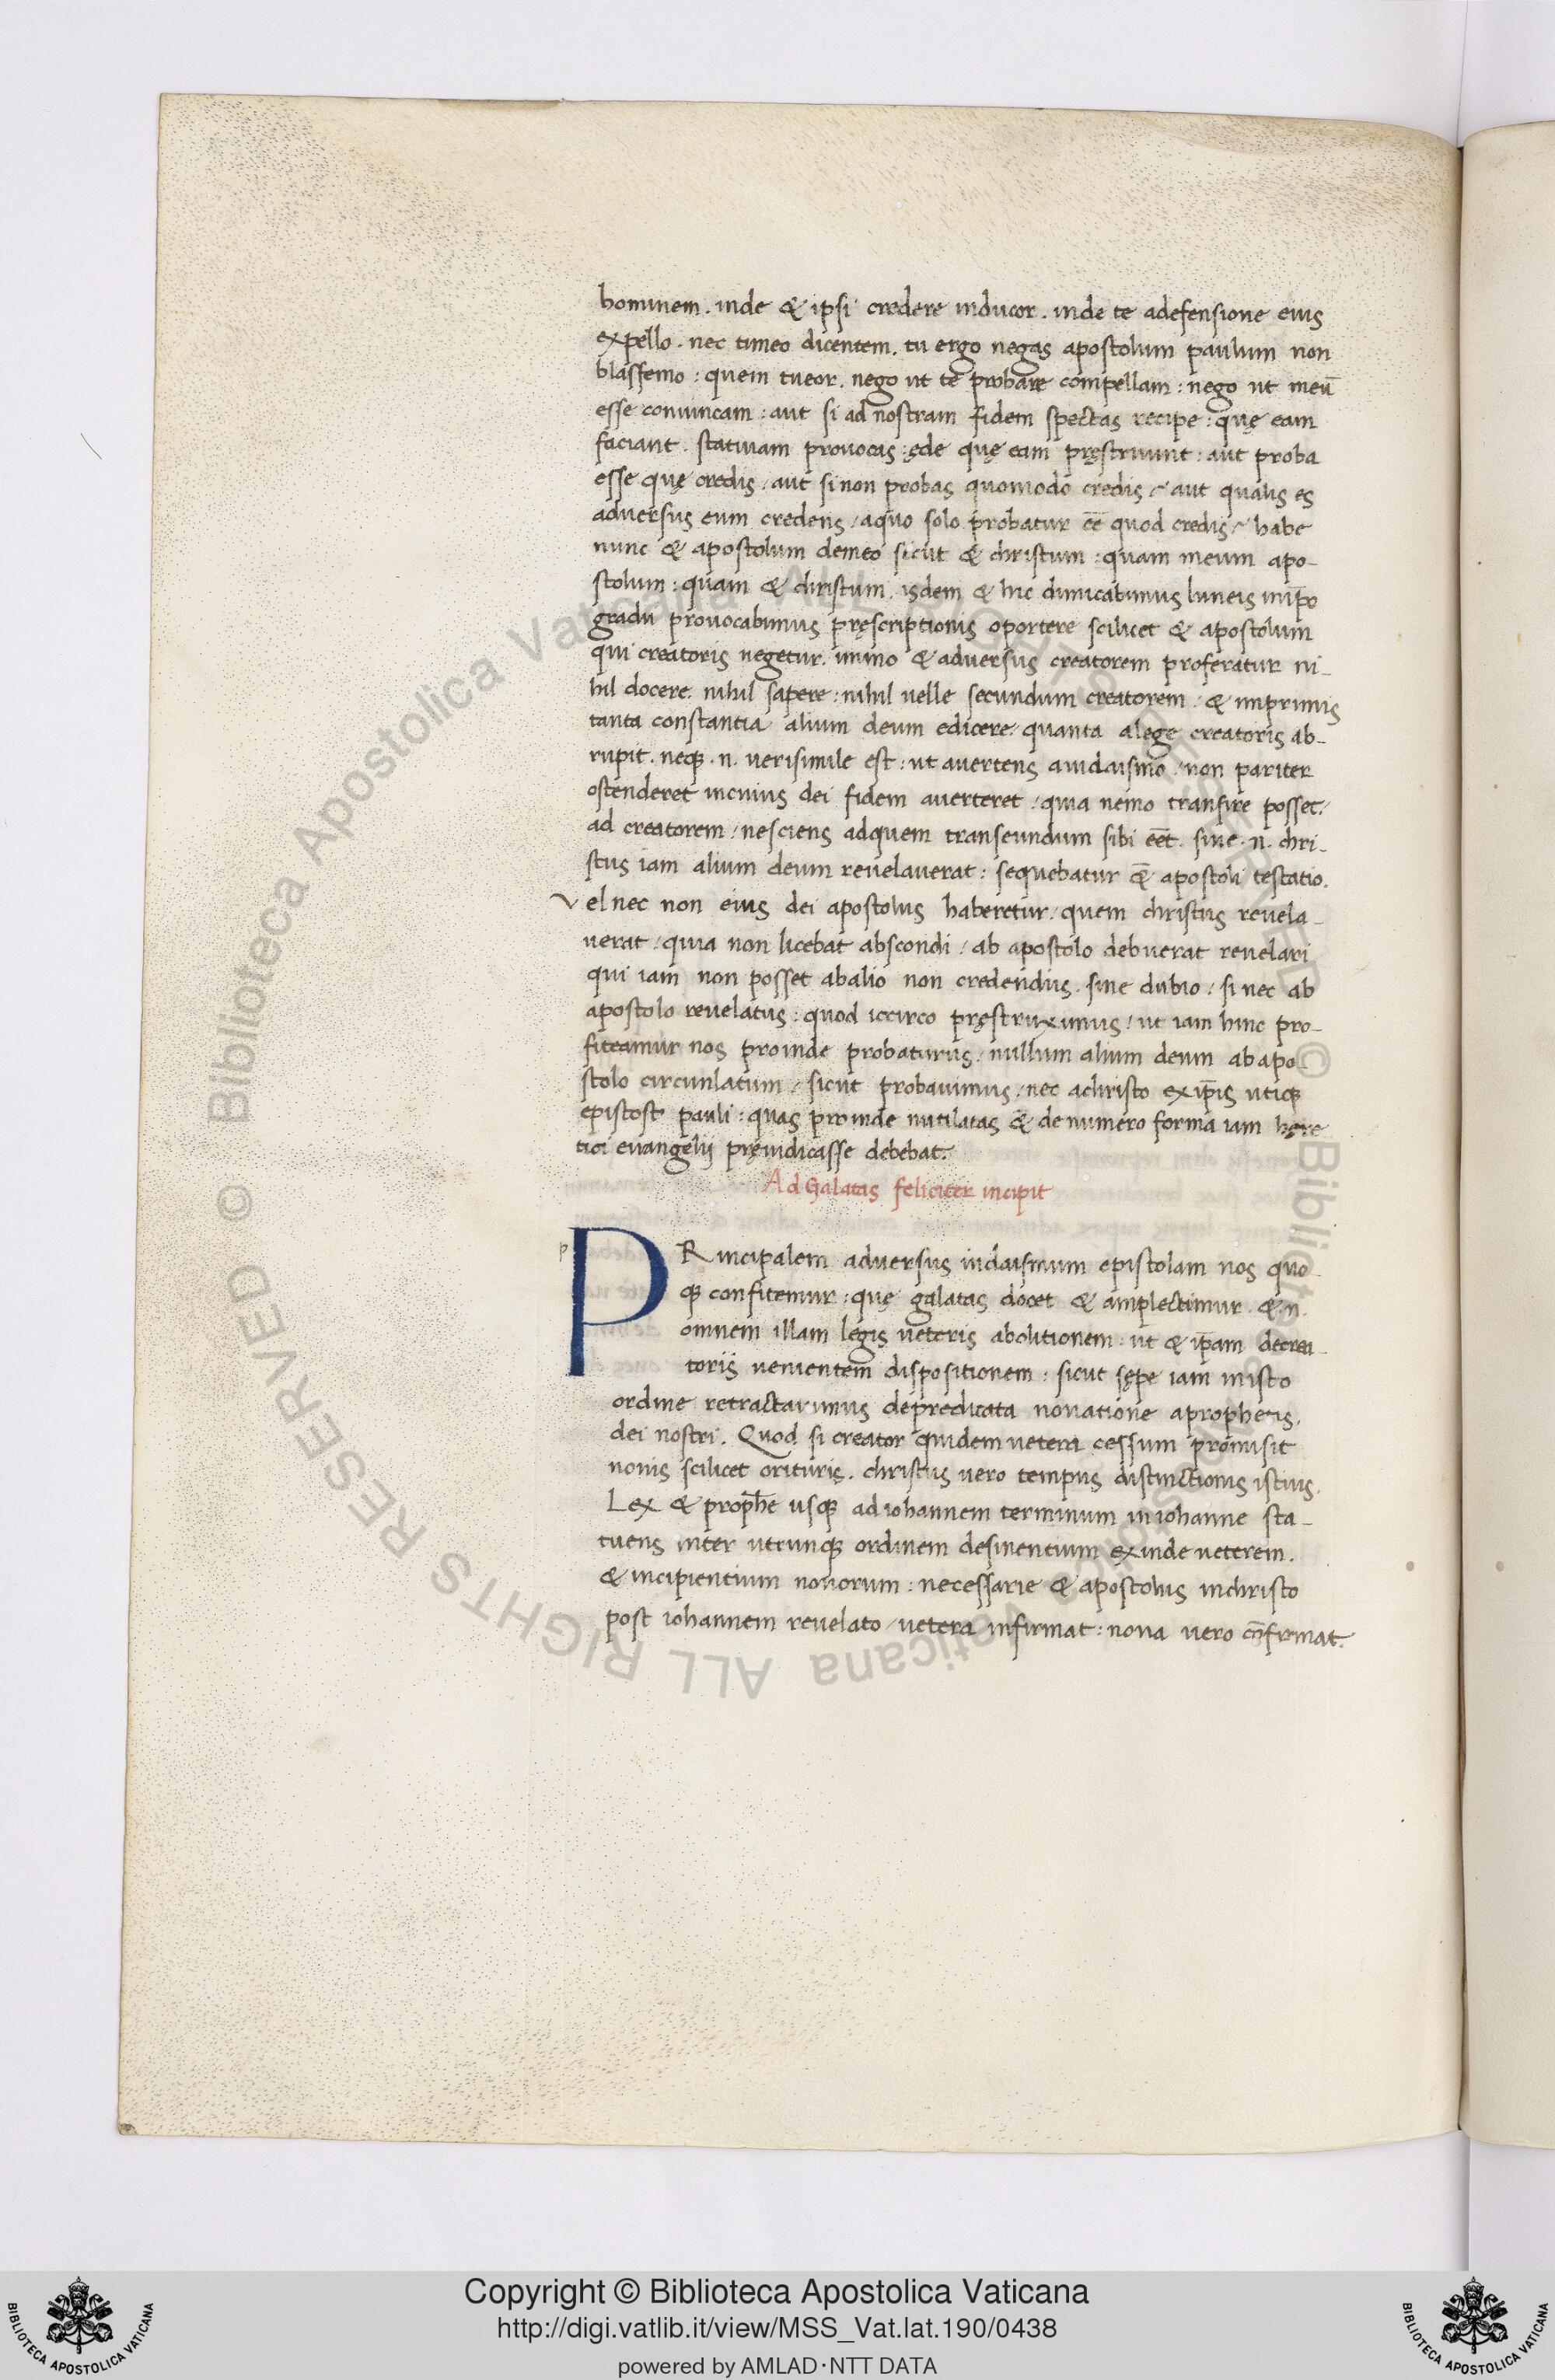 hominem. inde & ipsi credere inducor. inde te adefensione eius
expello. nec timeo dicentem. tu ergo negas apostolum paulum non
blasfemo: quem tueor. nego ut te probare compellam: nego ut meū
esse conuincam: aut si ad nostram fidem spectas recipe: quę eam
faciant. statuiam prouocas: ęde quę eam pręstruunt: aut proba
esse quę credis / aut si non probas quomodo credis? aut qualis es
aduersus eum credens / aquo solo probatur eē quod credis? habe
nunc & apostolum demeo sicut & christum: quam meum apo-
stolum: quam & christum. isdem & hic dimicabimus luneis inip̄o
gradu prouocabimus pręscriptionis oportere scilicet & apostolum
qui creatoris negetur. immo & aduersus creatorem proferatur ni-
hil docere. nihil sapere: nihil uelle secundum creatorem / & imprimis
tanta constantia alium deum edicere / quanta alege creatoris ab-
rupit. neqꝫ .n. uerisimile est: ut auertens auidaismo / non pariter
ostenderet incuius dei fidem auerteret / quia nemo transire posset /
ad creatorem / nesciens adquem transeundum sibi eēt. siue .n. chri-
stus iam alium deum reuelauerat: sequebatur &̄ apostoli testatio.
Vel nec non eius dei apostolus haberetur / quem christus reuela-
uerat / quia non licebat abscondi / ab apostolo debuerat reuelari
qui iam non posset abalio non credendus. sine dubio / si nec ab
apostolo reuelatus: quod iccirco pręstruximus / ut iam hinc pro-
fiteamur nos proinde probaturus / nullum alium deum ab apo-
stolo circunlatum / sicut probauimus / nec achristo exip̄is utiqꝫ
epistol pauli: quas proinde mutilatas & de numero forma iam hęre
tici euangelij pręiudicasse debebat.
Ad Galatas feliciter incipit
p
PRincipalem aduersus iudaismum epistolam nos quo-
qꝫ confitemur: quę galatas docet & amplectimur. & .n.
omnem illam legis ueteris abolitionem: ut & ip̄am decrea-
toris uenientem dispositionem: sicut sępe iam in isto
ordine retractauimus depredicata nouatione aprophetis.
dei nostri. Quod si creator quidem uetera cessum promisit
nouis scilicet orituris. christus uero tempus distinctionis istius.
Lex & prophē usqꝫ ad iohannem terminum in iohanne sta-
tuens inter utrunqꝫ ordinem desinentium exinde ueterem.
& incipientium nouorum: necessarie & apostolus inchristo
post iohannem reuelato / uetera infirmat: noua uero cōnfirmat.
© Biblioteca Apostolica Vaticana ALL RIGHTS RESERVED
© Biblioteca Apostolica Vaticana ALL RIGHTS RESERVED
Copyright © Biblioteca Apostolica Vaticana
http://digi.vatlib.it/view/MSS_Vat.lat.190/0438
powered by AMLAD·NTT DATA
BIBLIOTECA APOSTOLICA VATICANA
BIBLIOTECA APOSTOLICA VATICANA